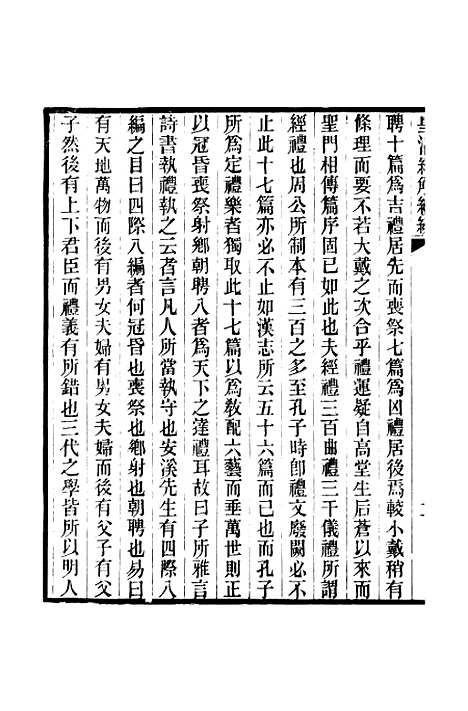 聘十篇爲吉禮居先而喪祭七篇爲凶禮居後焉較小戴稍有
條理而要不若大戴之次合乎禮運疑自高堂生后蒼以來而
聖門相傳篇序固已如此也夫經禮三百曲禮三千儀禮所謂
經禮也周公所制本有三百之多至孔子時卽禮文廢闕必不
止此十七篇亦必不止如漢志所云五十六篇而已也而孔子
所爲定禮樂者獨取此十七篇以爲敎配六藝而垂萬世則正
以冠昏喪祭射鄉朝聘八者爲天下之達禮耳故曰子所雅言
詩書執禮執之云者言凡人所當執守也安溪先生有四際八
編之目曰四際八編者何冠昏也喪祭也鄉射也朝聘也易曰
有天地萬物而後有男女夫婦有男女夫婦而後有父子有父
子然後有上下君臣而禮義有所錯也三代之學皆所以明人